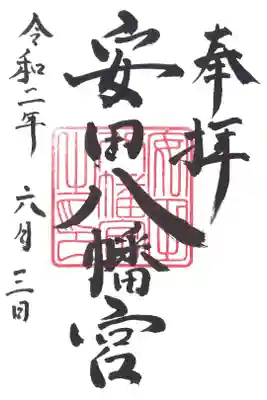 奉拝
安田八幡宮
令和二年 六月 三日